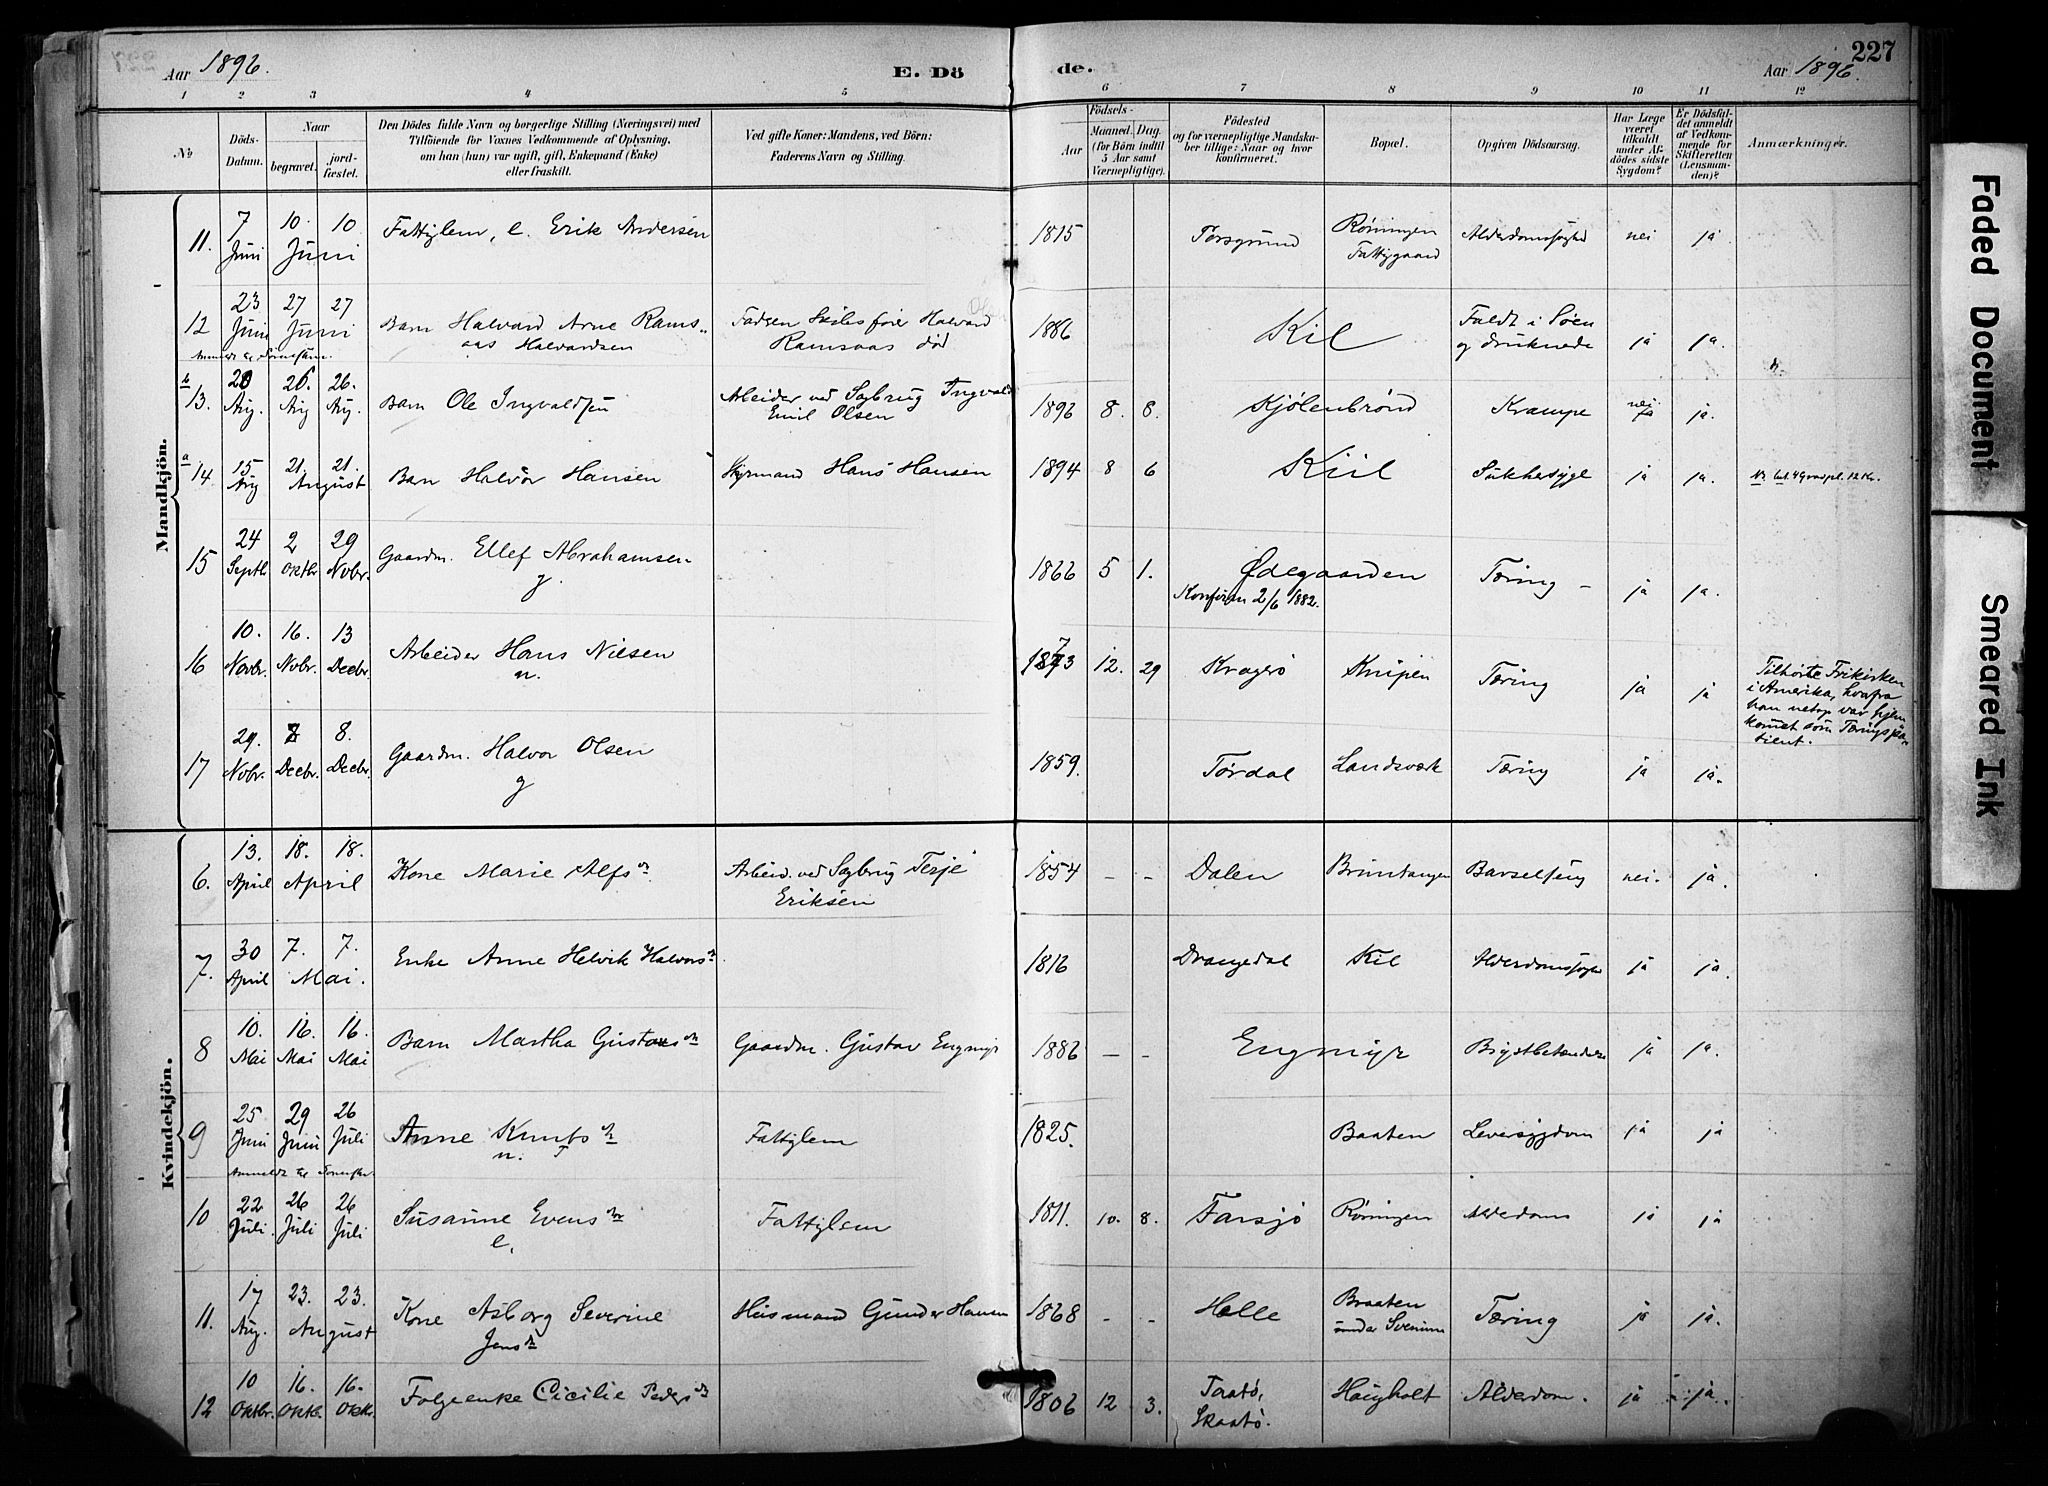 Aar 1896.
E. Döde.
Aar 1896.
227
1 2 3 4 5 6 7 8 9 10 11 12
No
Döds-Datum.
Naar
begravet.
jordfæstet.
Den Dödes fulde Navn og borgerlige Stilling (Næringsvei) med
Tilföiende for Voxnes Vedkommende af Oplysning,
om han (hun) var ugift, gift, Enkemand (Enke)
eller fraskilt.
Ved gifte Koner: Mandens, ved Börn:
Faderens Navn og Stilling.
Födsels-
Aar
Maaned. Dag.
(for Börn indtil
5 Aar samt
Værnepligtige).
Födested
og for værnepligtige Mandska-
ber tillige: Naar og hvor
konfirmeret.
Bopæl.
Opgiven Dödsaarsag.
Har Læge
været
tilkaldt
under Af-
dödes sidste
Sygdom?
Er Dödsfal-
det anmeldt
af Vedkom-
mende for
Skifteretten
(Lensman-
den)?
Anmærkninger.
Mandkjön.
11. 7 Juni 10. 10 Juni Fattiglem, e. Erik Andersen 1815 Porsgrund Rönningen Fattiggaard Alderdomssvaghed nei ja.
12 23 Juni 27 27 Juni Barn Halvard Arne Ramsaas Halvardsen Faderen Skibsfører Halvard Ramsaas død 1886 Kil Faldt i Søen og druknede ja ja.
b 13. 20 Aug. 26. Aug 26. Aug. Barn Ole Ingvaldsen Arbeider ved Sagbrug Ingvald Emil Olsen 1896 8. 8. Kjølenbrønd Krampe nei ja.
a 14 15 Aug 21. 21. August Barn Halvor Hansen Styrmand Hans Hansen 1894 8 6 Kiil Sukkersyge ja ja.
15 24 Septbr 2 Oktbr 29 Novbr. Gaardm. Ellef Abrahamsen g. 1866 5 1. Ødegaarden Konfirm 2/6 1882. Tæring - ja ja.
16 10. Novbr. 16. Novbr. 13 Decbr. Arbeider Hans Nilsen n. 1873 12. 29 Kragerø Knipen Tæring ja ja Tilhørte Frikirken
i Amerika, hvofra
han netop var hjem
kommet som Tæringspa-
tient.
17 29. Novbr. 8 Decbr. 8. Decbr. Gaardm. Halvor Olsen g 1859. Tørdal Landsværk Tæring ja ja.
Kvindekjön.
6. 13. April 18. 18. April Kone Marie Alfsdr. Arbeid. ved Sagbrug Terje Eriksen 1854 - - Dalen Bruntangen Barselseng nei. ja.
7. 30 April 7. 7. Mai. Enke Anne Helvik Halvorsdr 1816 Drangedal Kil Alderdomssvaghed ja ja.
8 10. Mai 16. Mai 16. Mai Barn Martha Gustavsdr Gaardm. Gustav Engmyr 1886 - - Engmyr Brystbetændelse ja ja.
9 25 Juni 29 Juni 26 Juli Anne Knutsdr n. Fattiglem 1825. Baaten Leversygdom ja ja
10 22 Juli. 26 Juli 26 Juli Susanne Evensdr e. Fattiglem 1811. 10. 8. Farsjø Rönningen Alderdom ja ja
11. 17 Aug. 23. 23. August Kone Asborg Severine Jensdr Husmand Gunder Hansen 1868 - - Helle Braaten under Svenum Tæring ja ja.
12 10 Oktbr. 16. Oktb. 16. Oktbr. Folgeenke Cicilie Pedersdr 1806 12 3. Taatø, Skaatø. Haugholt Alderdom. ja ja.
Faded Document
Smeared Ink